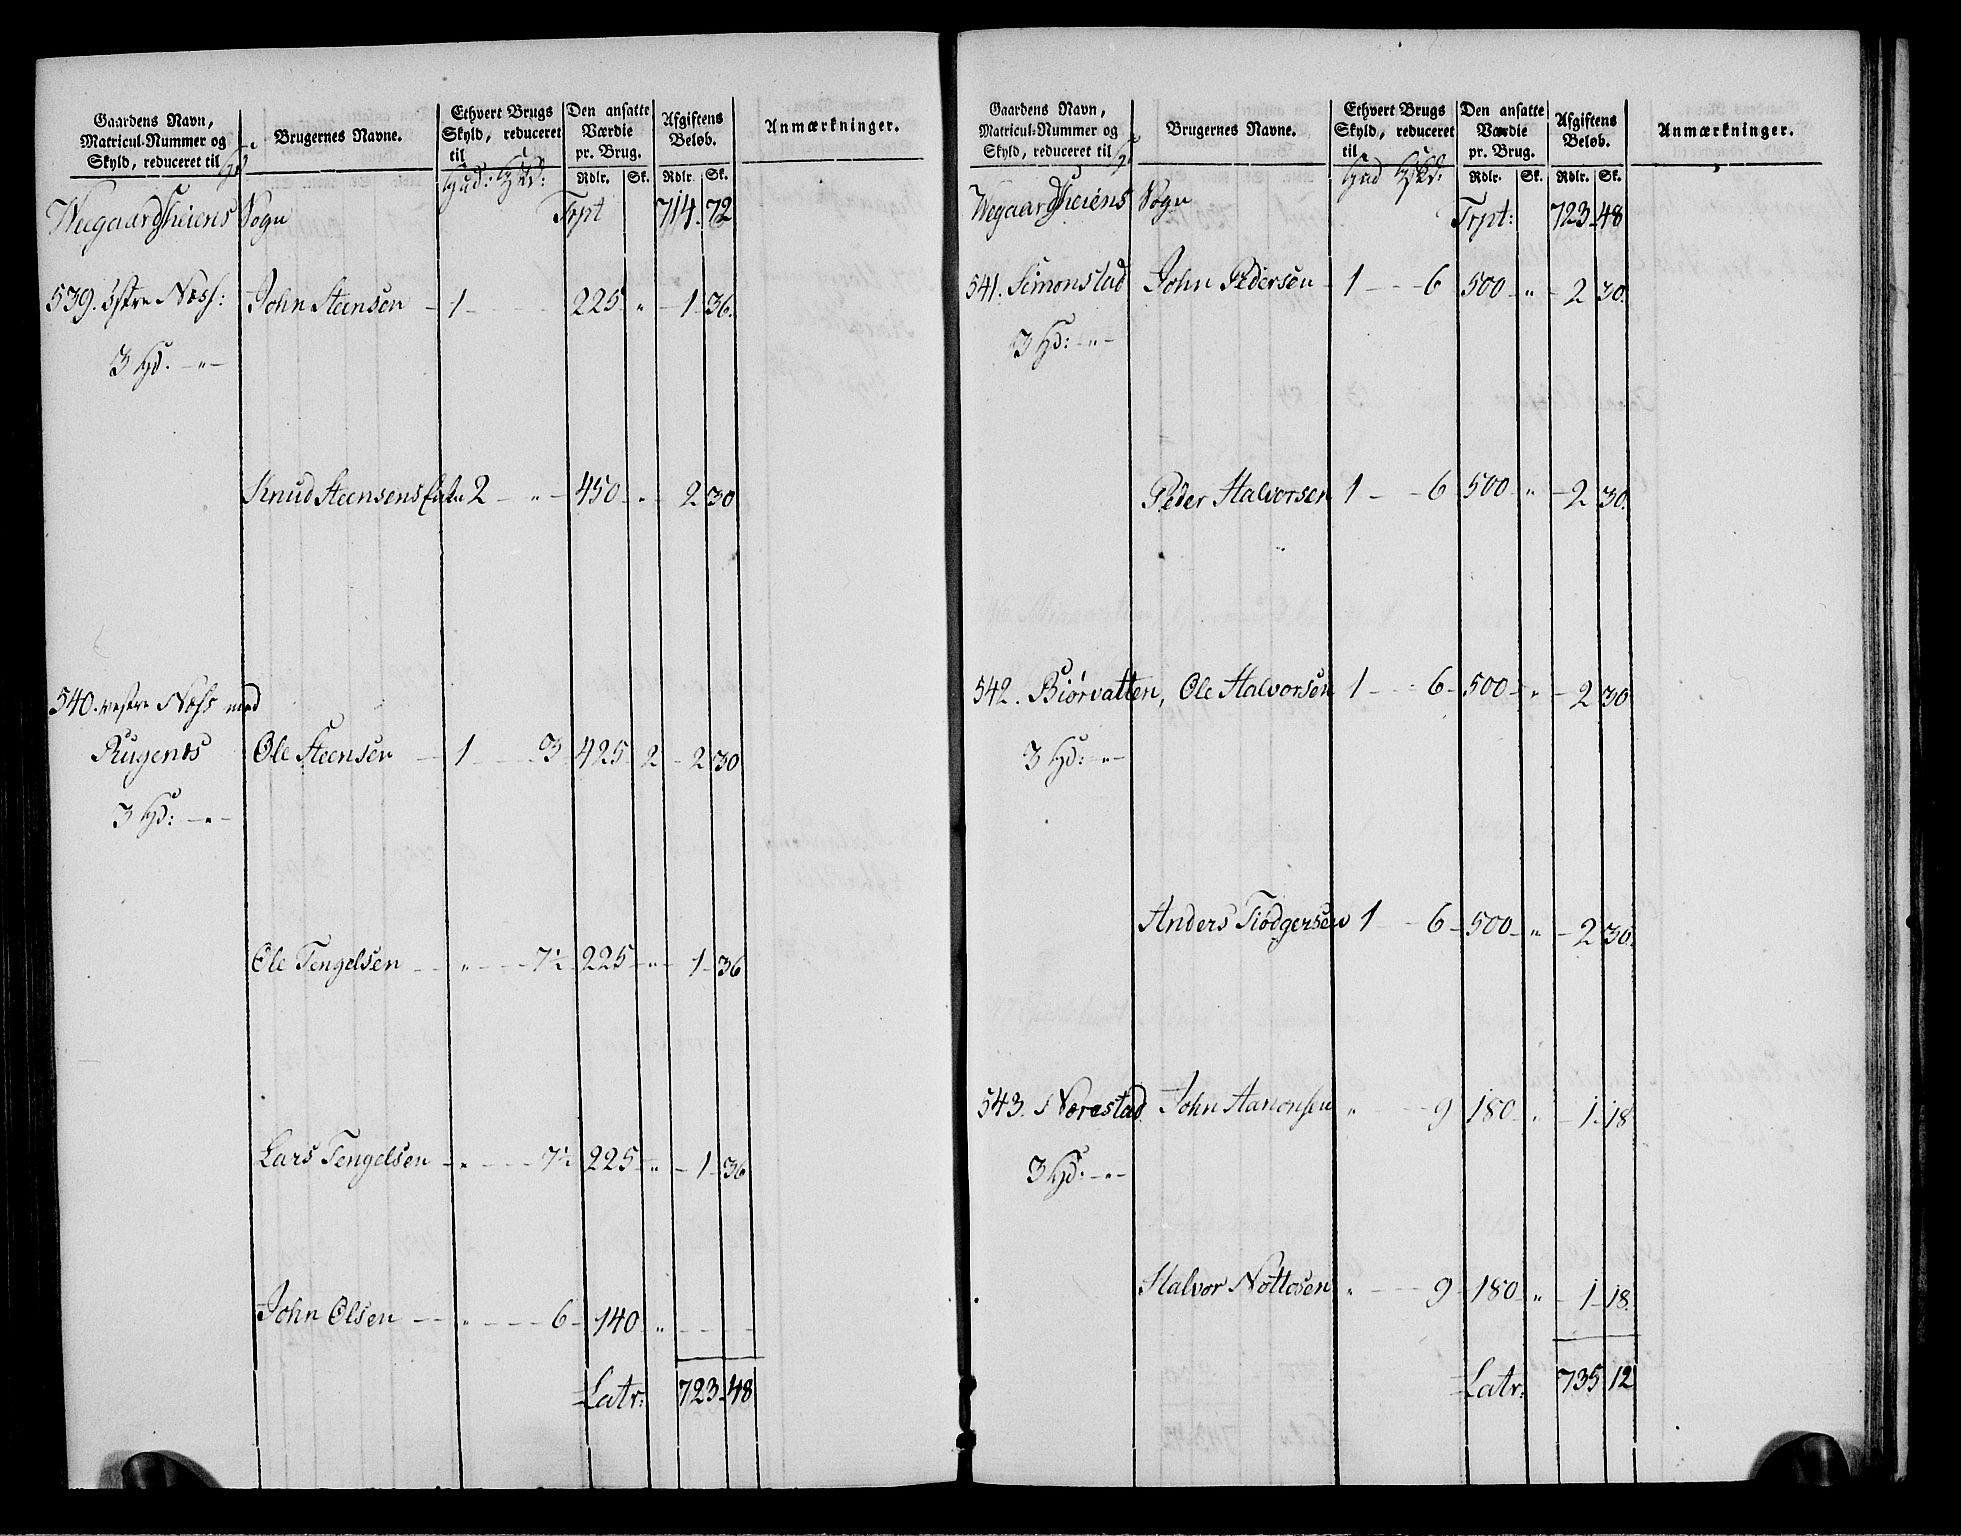 Gaardens Navn,
Matricul-Nummer og
Skyld, reduceret til Hd.
Brugernes Navne.
Ethvert Brugs
Skyld, reduceret
til
Hud:
Den ansatte
Værdie
pr. Brug.
Rdlr. Sk.
Afgiftens
Beløb.
Rdlr. Sk.
Anmærkninger.
Wegaardsheiens Sogn Trpt 714. 72
539. östre Næss: John Steensen - 1 - - - - 225 " - 1 - 36.
3 Hd. - " -
Knud Steensens Enke 2 - " - 450 - " - 2 30
540. vestre Næss med
Rugenes Ole Steensen - 1 - - - 3 425 2 - 2 30
3 Hd: - " -
Ole Tengelsen - - " - - - 7½ 225 - " - 1 - 36
Lars Tengelsen - " - - - 7½ 225 - " - 1 - 36
John Olsen - - " - - - 6 - 140 " - - -
Latr: 723 - 48
Gaardens Navn,
Matricul-Nummer og
Skyld, reduceret til Hd
Brugernes Navne.
Ethvert Brugs
Skyld, reduceret
til
Hud
Den ansatte
Værdie
pr. Brug.
Rdlr. Sk.
Afgiftens
Beløb.
Rdlr. Sk.
Anmærkninger.
Wegaardsheiens Sogn Trpt: 723 - 48
541. Simonstad John Pedersen - 1 - - 6 500 - " - 2 30.
3 Hd: - " -
Peder Halvorsen 1 - - 6 500 - " - 2 30.
542. Biørvatten, Ole Halvorsen 1 - - 6 - 500 - " - 2 30
3 Hd: - " -
Anders Tiödgersen 1 - 6 - 500 - " - 2 30.
543. Nærestad John Aanonsen " - - - 9 180 - " - 1. 18
3 Hd: - " -
Halvor Nottosen " - - - 9 - 180 - " - 1 - 18.
Latr: 735 12